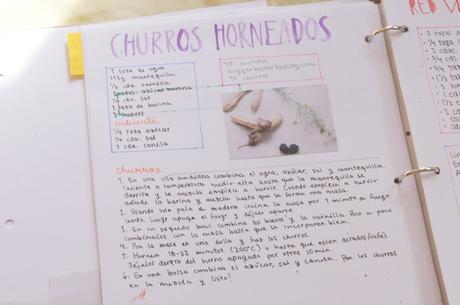 CHURROS HORNEADOS
RED VE
1 taza de agua
113g mantequilla
1/2 cda. vainilla
2 cdas. azúcar morena
1/4 cda. sal
1 taza de harina
3 huevos
cubierta
1/4 taza azúcar
1 cda. canela
45 minutos
biggerbolderbaking.com
30 churros
churros
1. En una olla mediana combina el agua, azúcar, sal y mantequilla.
Calienta a temperatura medio-alta hasta que la mantequilla se
derrita y la mezcla empiece a hervir. Cuando empiece a hervir
añade la harina y mezcla hasta que se forme una masa.
2. Usando una pala de madera cocina la masa por 1 minuto a fuego
lento. Luego apaga el fuego y déjalo aparte.
3. En un pequeño bowl combina los huevos y la vainilla. Poco a poco
combínalos con la masa hasta que se incorporen bien.
4. Pon la masa en una dulla y haz los churros.
5. Hornea 18-22 minutos (200°C) o hasta que estén dorados/cafés.
Déjalos dentro del horno apagado por otros 10 min.
6. En una bolsa combina el azúcar, sal y canela. Pon los churros
en la mezcla y listo!